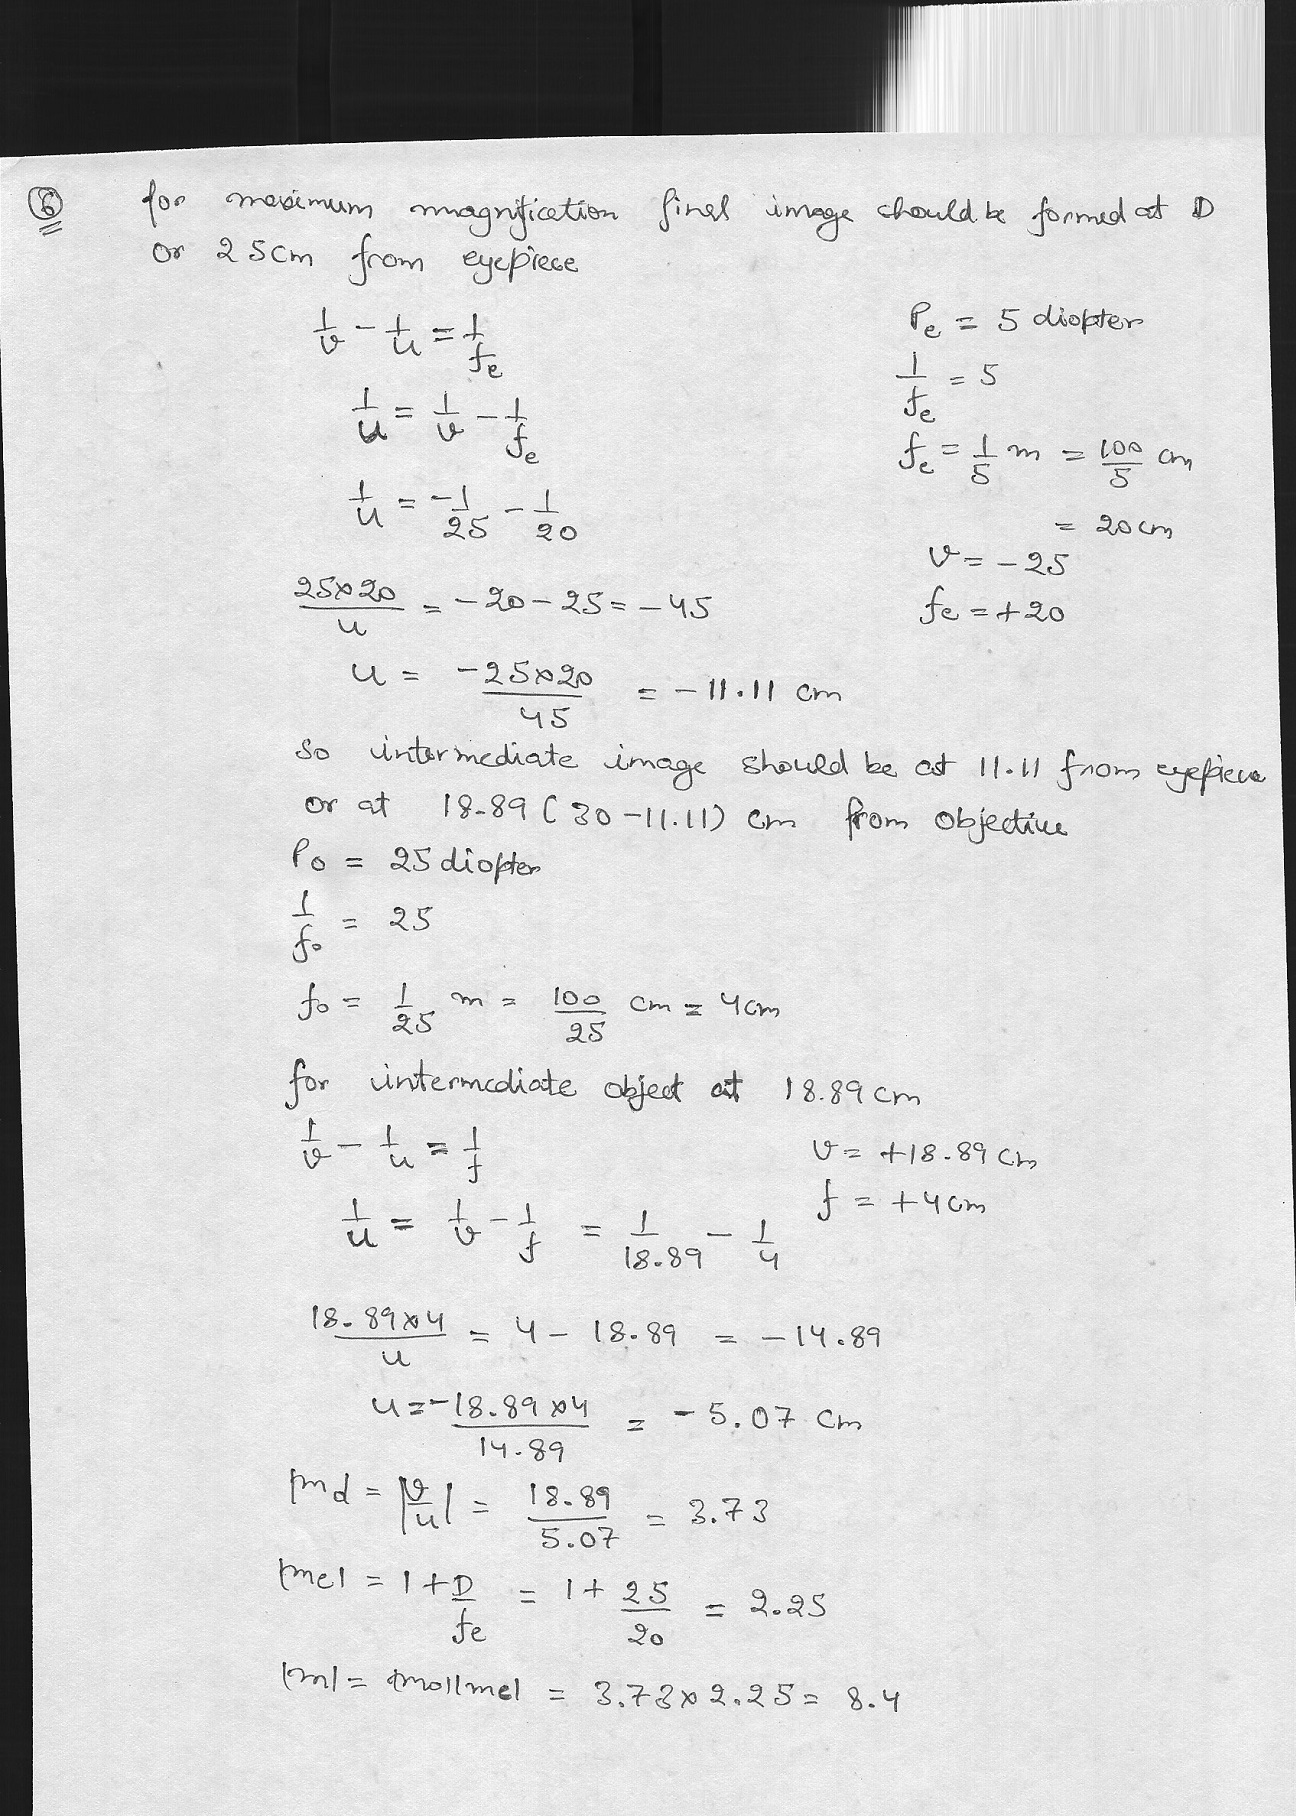 6
for maximum magnification final image should be formed at D
or 25cm from eyepiece
1/v - 1/u = 1/fe
Pe = 5 diopter
1/u = 1/v - 1/fe
1/fe = 5
fe = 1/5 m = 100/5 cm
1/u = -1/25 - 1/20
= 20cm
v = -25
25×20/u = -20-25 = -45
fe = +20
u = -25×20/45 = -11.11 cm
so intermediate image should be at 11.11 from eyepiece
or at 18.89 (30-11.11) cm from objective
Po = 25 diopter
1/fo = 25
fo = 1/25 m = 100/25 cm = 4cm
for intermediate object at 18.89 cm
1/v - 1/u = 1/f
v = +18.89 cm
f = +4cm
1/u = 1/v - 1/f = 1/18.89 - 1/4
18.89×4/u = 4 - 18.89 = -14.89
u = -18.89×4/14.89 = -5.07 cm
|mo| = |v/u| = 18.89/5.07 = 3.73
|me| = 1+D/fe = 1+25/20 = 2.25
|m| = |mo||me| = 3.73×2.25 = 8.4